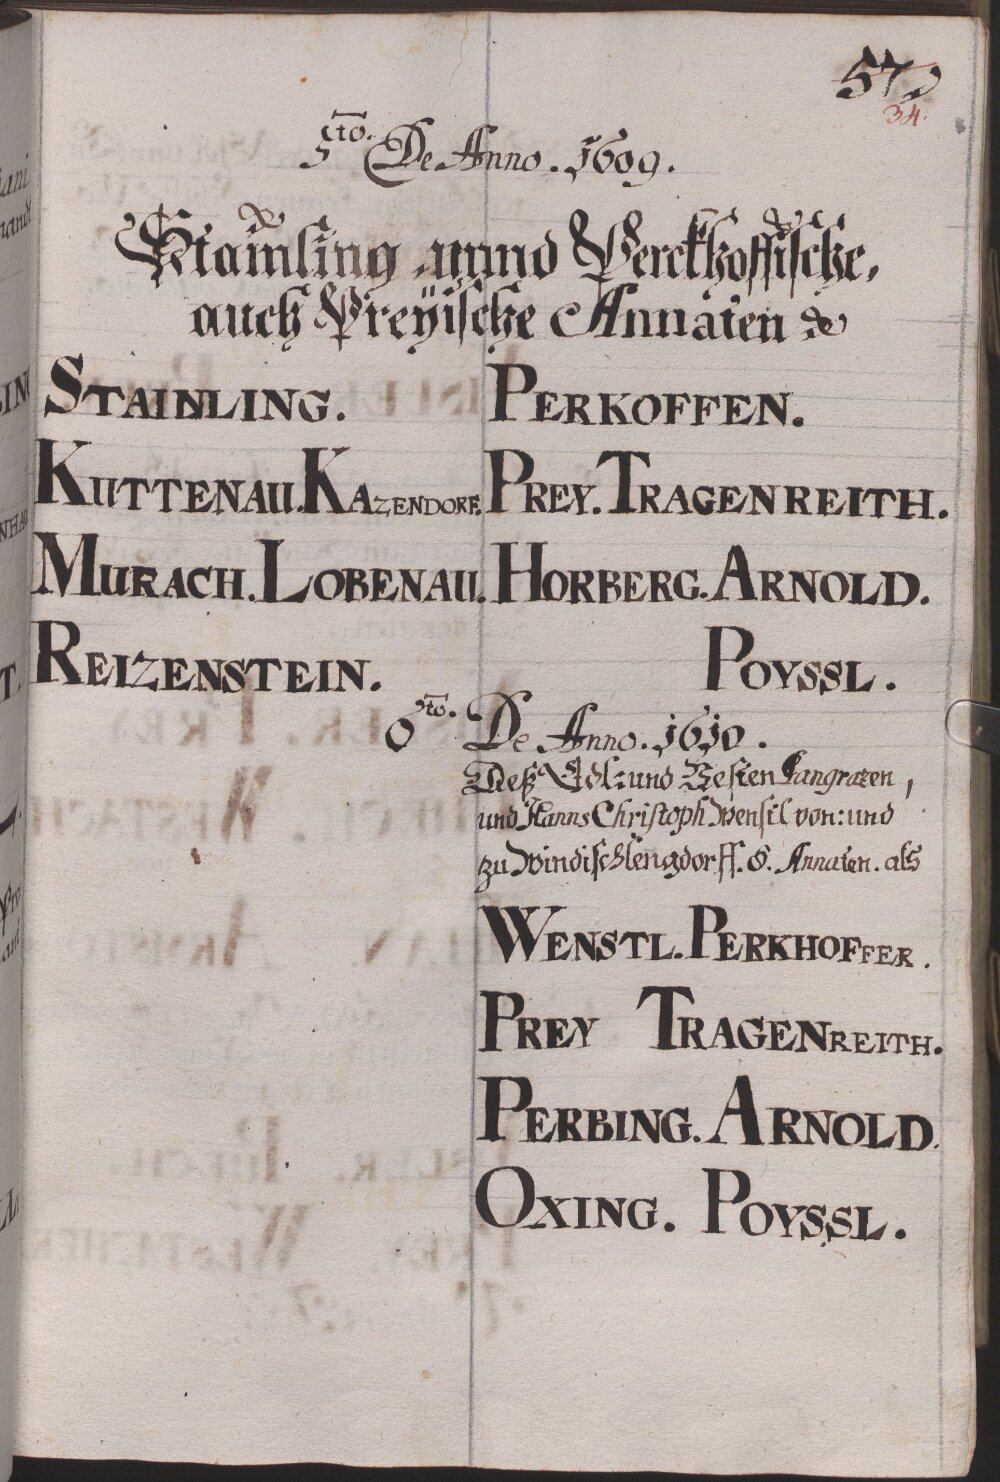 570
34.
5to. De Anno. 1609.
Stainling unnd Perckhoffische,
auch Preyische Annaten
STAINLING. PERKOFFEN.
KUTTENAU. KAZENDORF. PREY. TRAGENREITH.
MURACH. LOBENAU. HORBERG. ARNOLD.
REIZENSTEIN. POYSSL.
6to. De Anno. 1610.
Deß Edl: und Vesten Pangrazen,
und Hanns Christoph Wensil von: und
zu Windischlengdorff. 8. Annaten. als
WENSTL. PERKHOFFER.
PREY TRAGENREITH.
PERBING. ARNOLD.
OXING. POYSSL.